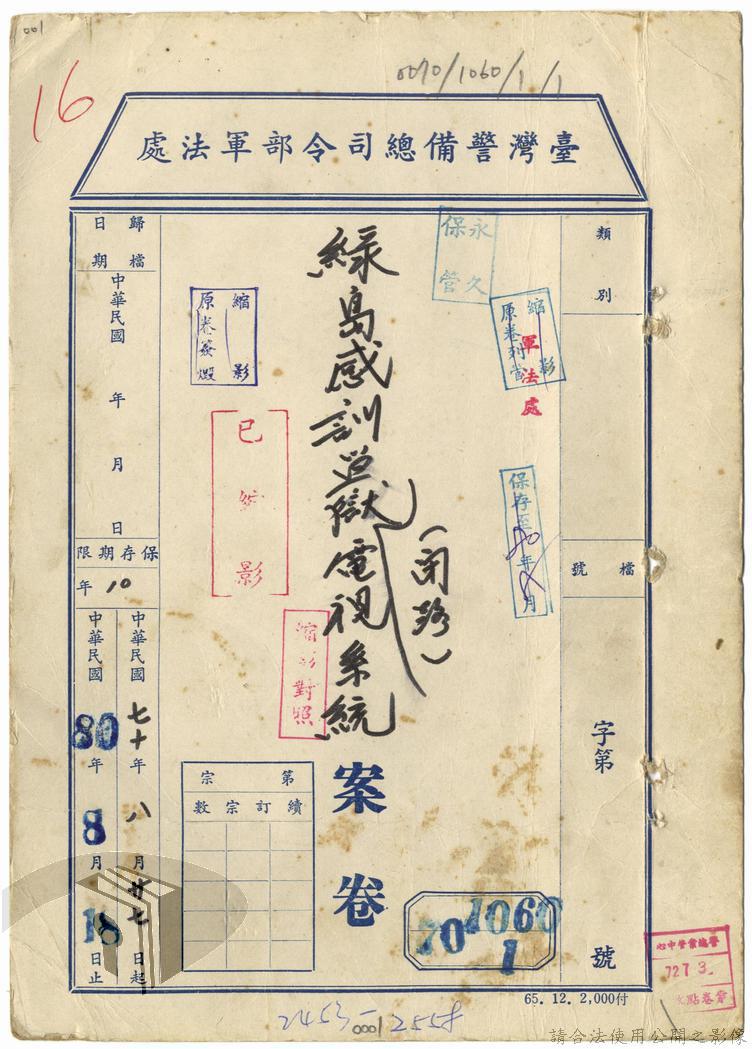 001
16
0070/1060/1/1
臺灣警備總司令部軍法處
類別
檔號
字第
號
永久保管
縮影
原卷列管
軍法處
保存至
年
月
綠島感訓監獄電視系統
(閉路)
案卷
縮影
原卷簽燬
已縮影
縮影對照
歸檔日期
中華民國 年 月 日
保存期限
10年
中華民國七十年八月廿七日起
中華民國80年8月18日止
第 宗
續訂宗數
70 1060
1
警總檔管中心
727 3.
65. 12. 2,000付
2453-2558
0001
請合法使用公開之影像